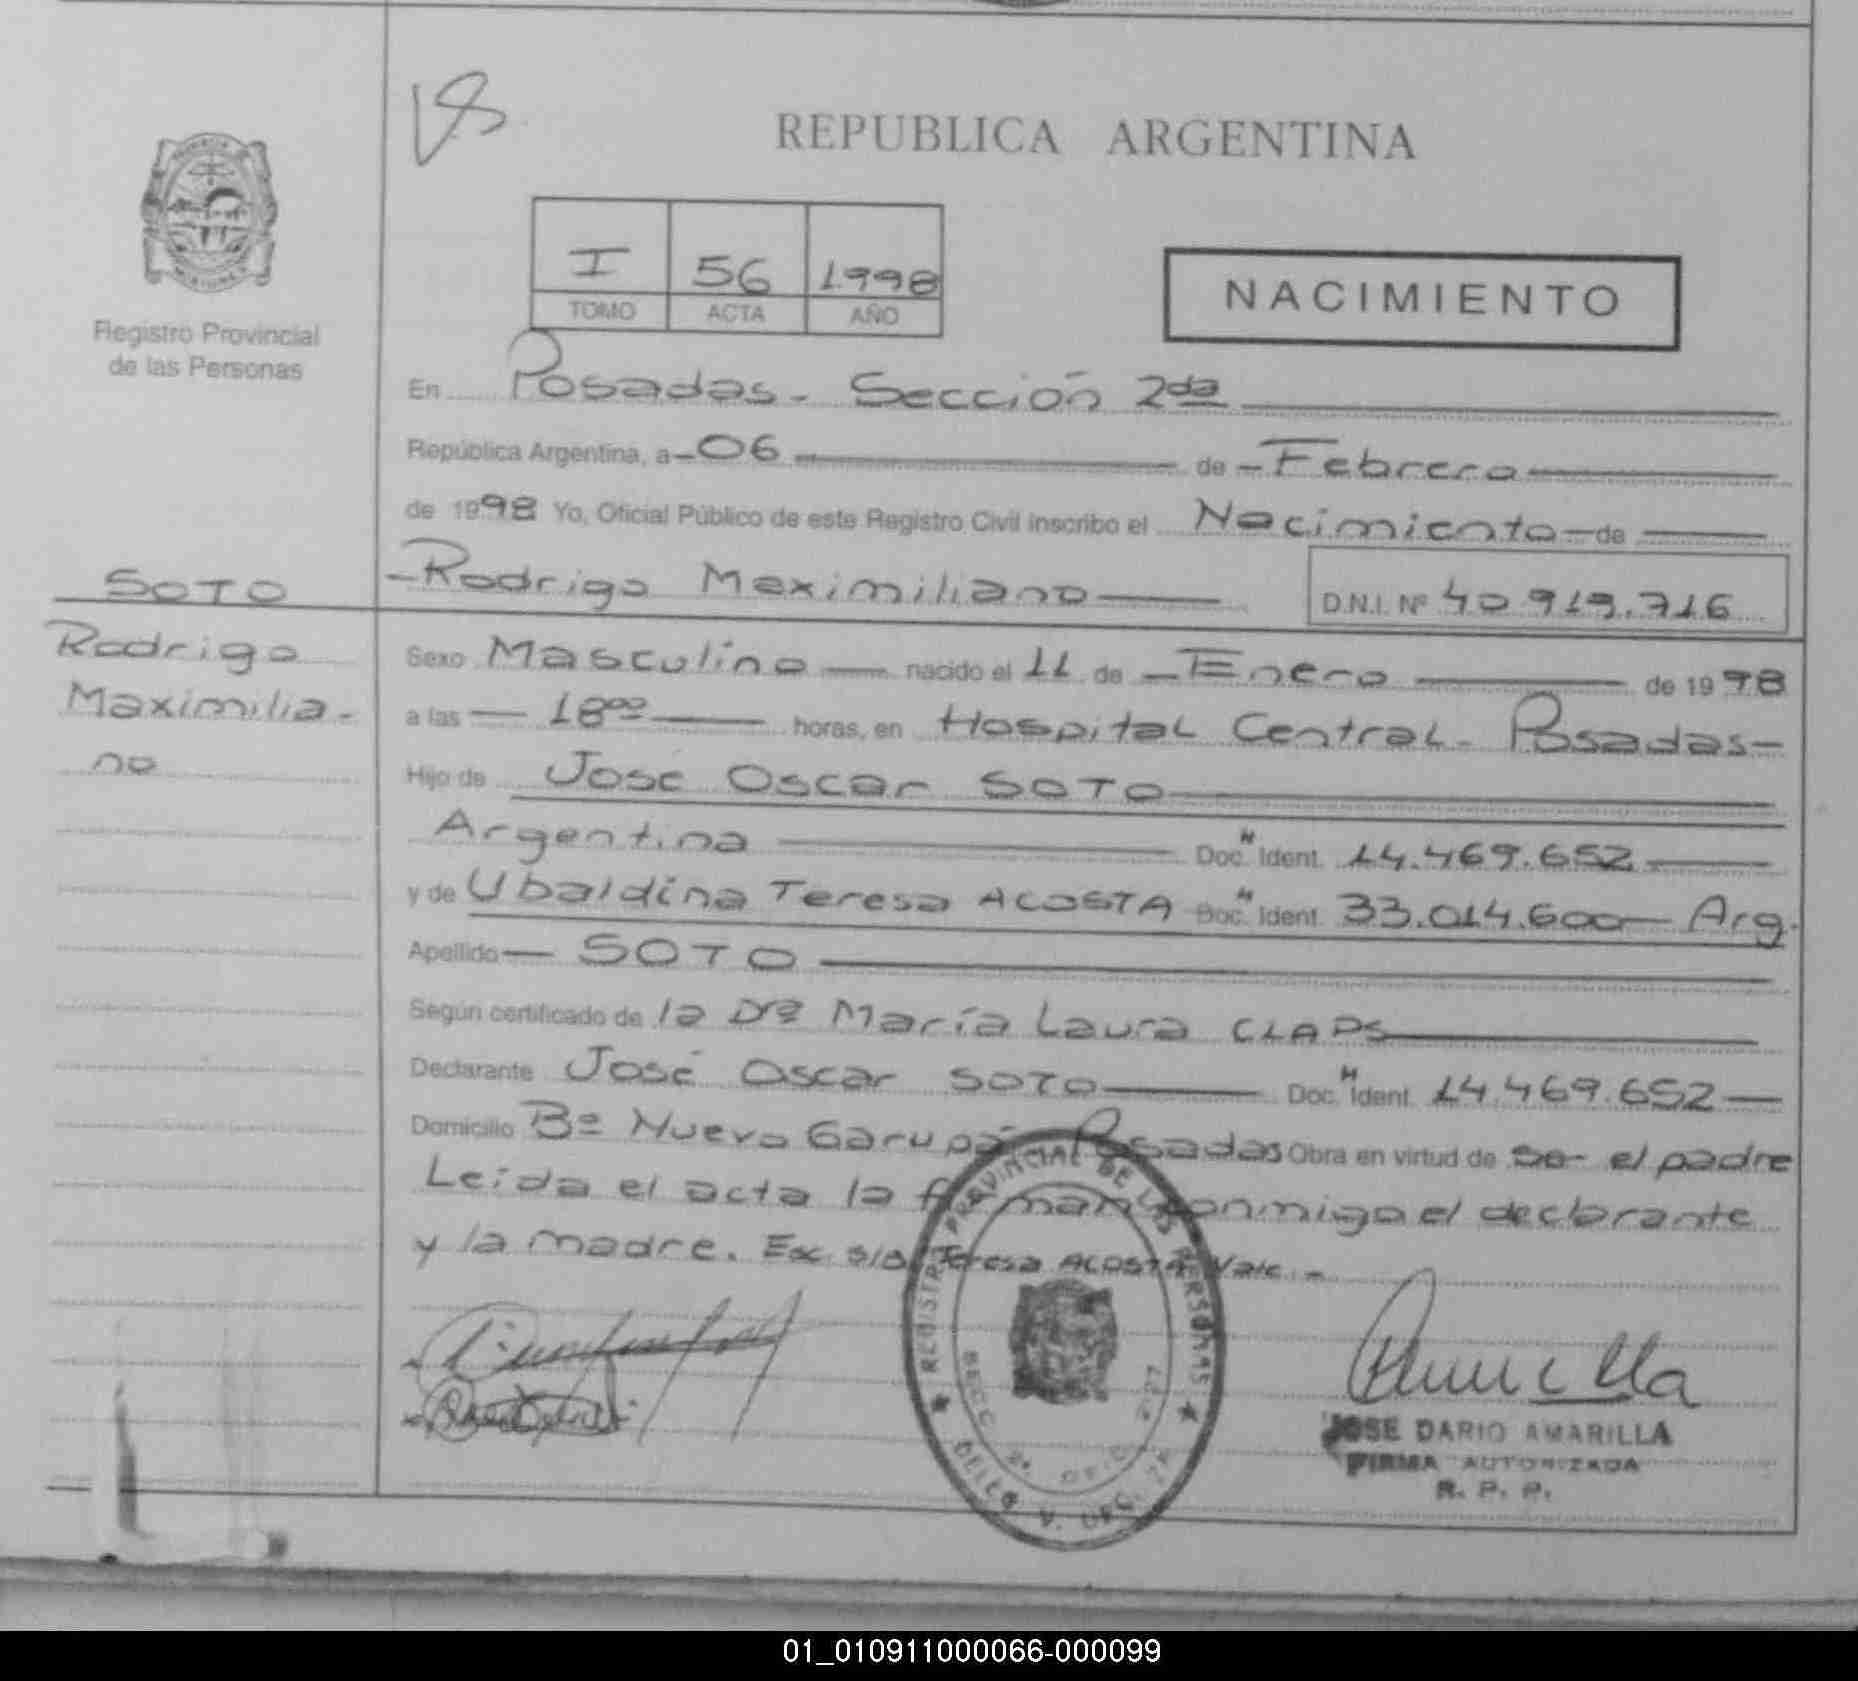 REPUBLICA ARGENTINA
I 56 1998
TOMO ACTA AÑO
NACIMIENTO
Registro Provincial
de las Personas
En Posadas - Sección 2da
República Argentina, a - 06 de - Febrero
de 1998 Yo, Oficial Público de este Registro Civil inscribo el Nacimiento - de
- Rodrigo Maximiliano
D.N.I. Nº 40.919.716
SOTO
Rodrigo
Maximilia-
no
Sexo Masculino nacido el 11 de - Enero de 1998
a las 18:00 horas, en Hospital Central - Posadas -
Hijo de José Oscar SOTO
Argentina Doc. Ident. 14.469.652
y de Ubaldina Teresa ACOSTA Doc. Ident. 33.014.600 - Arg.
Apellido - SOTO
Según certificado de la Drª María Laura CLAPS
Declarante José Oscar SOTO Doc. Ident. 14.469.652 -
Domicilio Bº Nuevo Garupá Posadas Obra en virtud de se- el padre
Leída el acta la firman conmigo el declarante
y la madre. Ex. s/b Teresa ACOSTA Vale. -
REGISTRO PROVINCIAL DE LAS PERSONAS
JOSE DARIO AMARILLA
FIRMA AUTORIZADA
R. P. P.
01_010911000066-000099